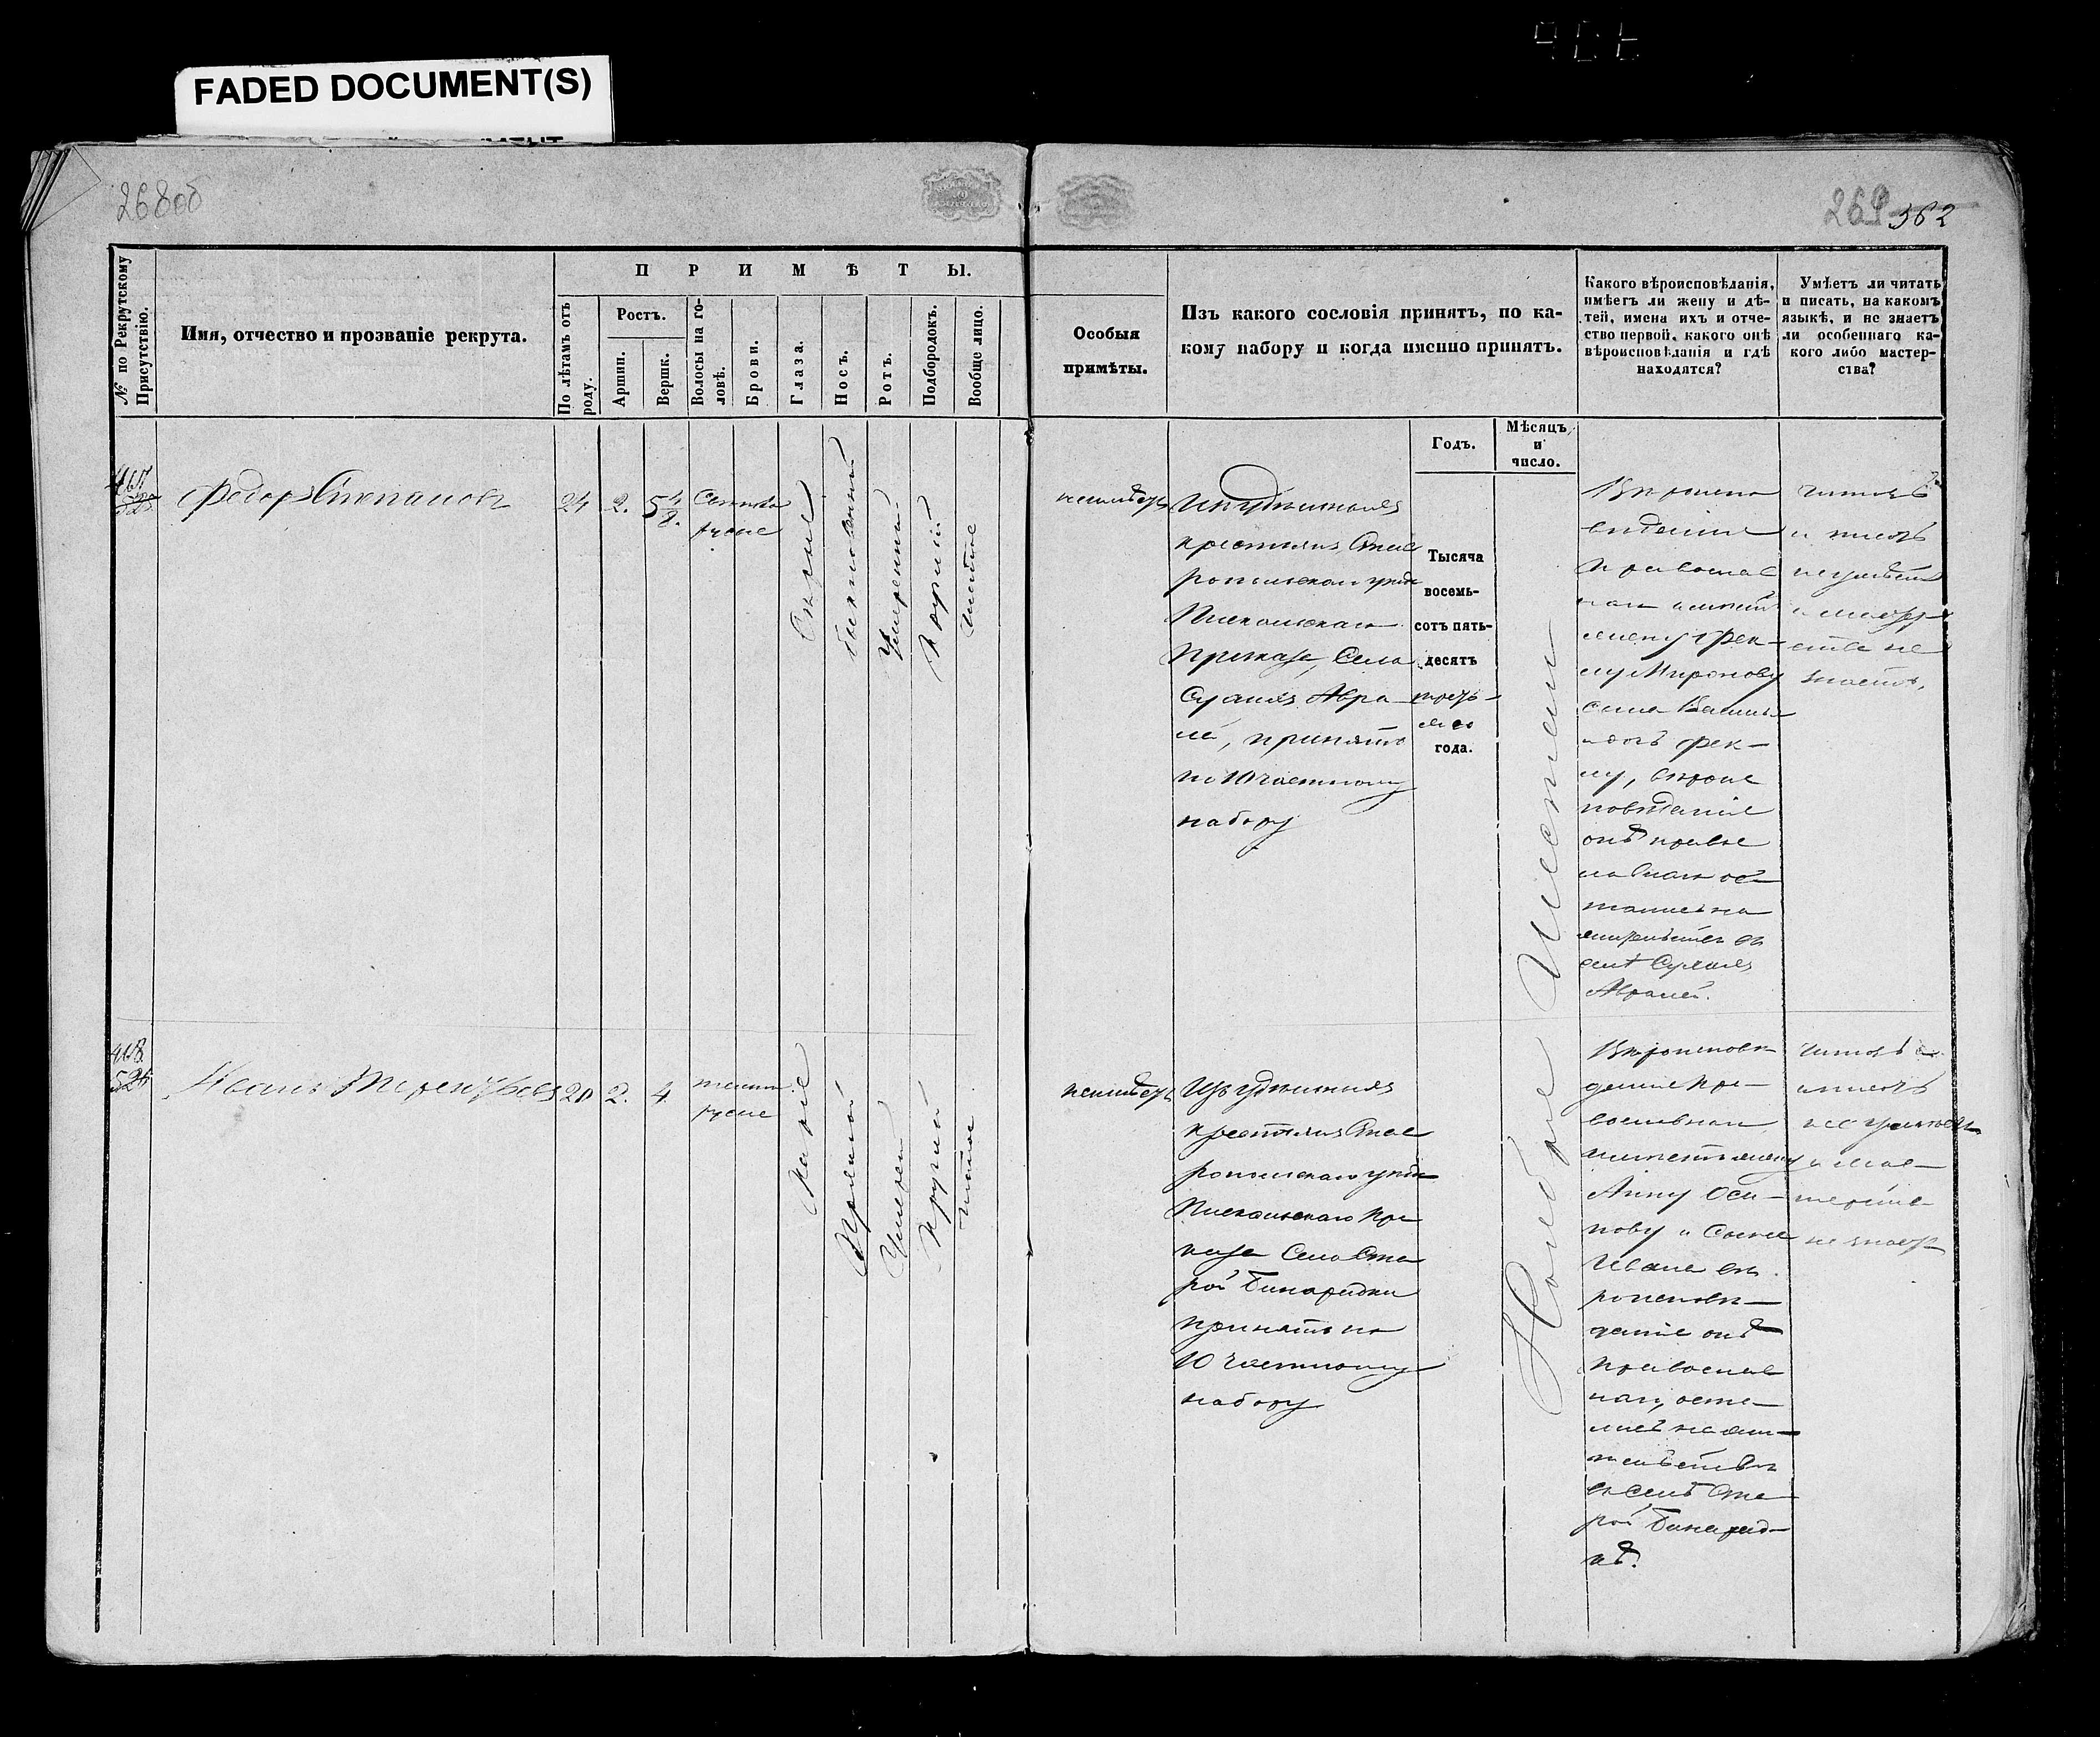 FADED DOCUMENT(S)
268об
269 362
№ по Рекрутскому Присутствію.
Имя, отчество и прозваніе рекрута.
ПРИМѢТЫ.
По лѣтамъ отъ роду.
Ростъ.
Аршин.
Вершк.
Волосы на головѣ.
Брови.
Глаза.
Носъ.
Ротъ.
Подбородокъ.
Вообще лицо.
Особыя
примѣты.
Изъ какого сословія принятъ, по ка-
кому набору и когда именно принятъ.
Годъ.
Мѣсяцъ
и
число.
Какого вѣроисповѣданія,
имѣетъ ли жену и дѣ-
тей, имена ихъ и отче-
ство первой, какого онѣ
вѣроисповѣданія и гдѣ
находятся?
Умѣетъ ли читать
и писать, на какомъ
языкѣ, и не знаетъ
ли особеннаго ка-
кого либо мастер-
ства?
Федоръ Степановъ
24
2.
5 4/8.
Светло
русые
Серые
обыкновенный
Умеренный
Круглый
чистое
неимѣетъ
Изъ удѣльныхъ
крестьянъ Став
ропольскаго уѣзд
Приказа, Села
Сухихъ Авра
лей, принятъ
по 10 частному
набору
Тысяча
восемь-
сотъ пять-
десятъ
третья
го
года.
Ноября
Вѣроиспо
вѣданія
православ
наго имѣетъ
жену Фек-
лу Миронову
сына Василья
и дочь Фек-
лу, вѣроис
повѣданіе
онѣ правос
лавнаго ос
тались на
жительстве въ
селѣ Сухихъ
Авралей.
читать
и писать
неумѣетъ
и мастер
ства не
знаетъ.
Иванъ Терентьевъ
20
2.
4
темно
русые
Карие
Прямой
Умерен
Круглый
чистое
неимѣетъ
Изъ удѣльныхъ
крестьянъ Став
ропольскаго уѣзд
При
каза Села Ста
рой Бинарадки
принятъ по
10 частному
набору
Вѣроисповѣ
даніе пра-
вославнаго
имѣетъ жену
Анну Оси-
пову и Сына
Ивана вѣ
роисповѣ-
даніе онѣ
православ
наго, оста-
лись на жи-
тельстве
въ селѣ Ста
рой Бинарад-
кѣ.
читать
и писать
не умѣетъ
и мас-
терства
не знаетъ